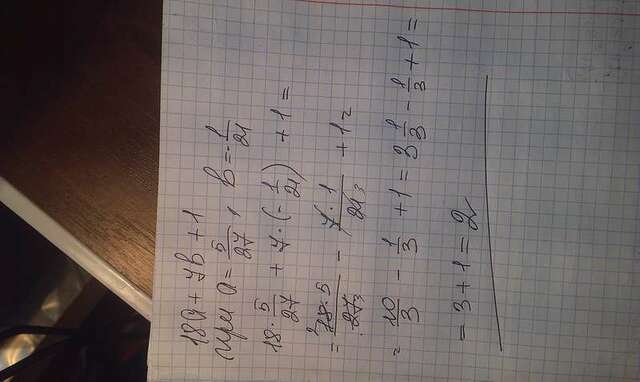 18a + 7b + 1
при a = 5/27, b = -1/21
18 · 5/27 + 7 · (-1/21) + 1 =
= 18 · 5/27 - 7 · 1/21 + 1 =
= 10/3 - 1/3 + 1 = 3 1/3 - 1/3 + 1 =
= 3 + 1 = 2